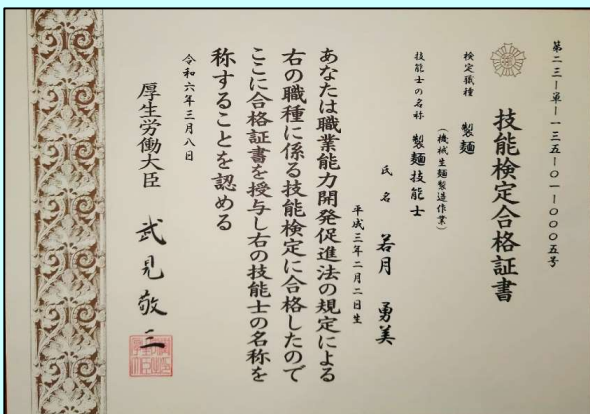 第二三ー単ー一三五ー〇ー〇〇〇五号
技能検定合格証書
検定職種 製麺
(機械生麺製造作業)
技能士の名称 製麺技能士
氏名 若月 勇美
平成三年二月二日生
あなたは職業能力開発促進法の規定による
右の職種に係る技能検定に合格したので
ここに合格証書を授与し右の技能士の名称を
称することを認める
令和六年三月八日
厚生労働大臣 武見敬三